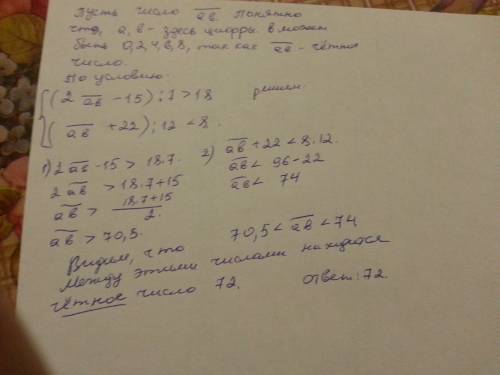 Пусть число ab. Понятно
что, a, b - здесь цифры. b может
быть 0,2,4,6,8, так как ab - чётное
число.
По условию: решаем:
{(2 ab - 15) : 7 > 18
(ab + 22) : 12 < 8.
1) 2 ab - 15 > 18·7.
2 ab > 18·7+15
ab > 18·7+15 / 2.
ab > 70,5.
2) ab + 22 < 8·12.
ab < 96-22
ab < 74
Видем, что 70,5 < ab < 74
между этими числами находится
чётное число 72. ответ: 72.